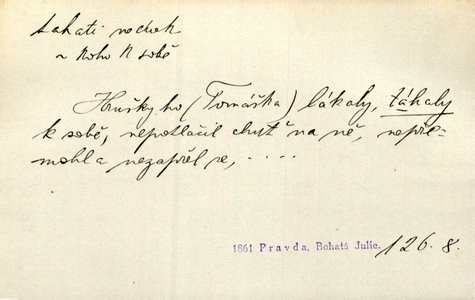 tahati nedok
~ koho k sobě
Hrušky ho (Tomáška) lákaly, táhaly
k sobě, nepotlačil chuť na ně, nepře-
mohl a nezapřel se, ....
1861 Pravda, Bohatá Julie. 126. 8.